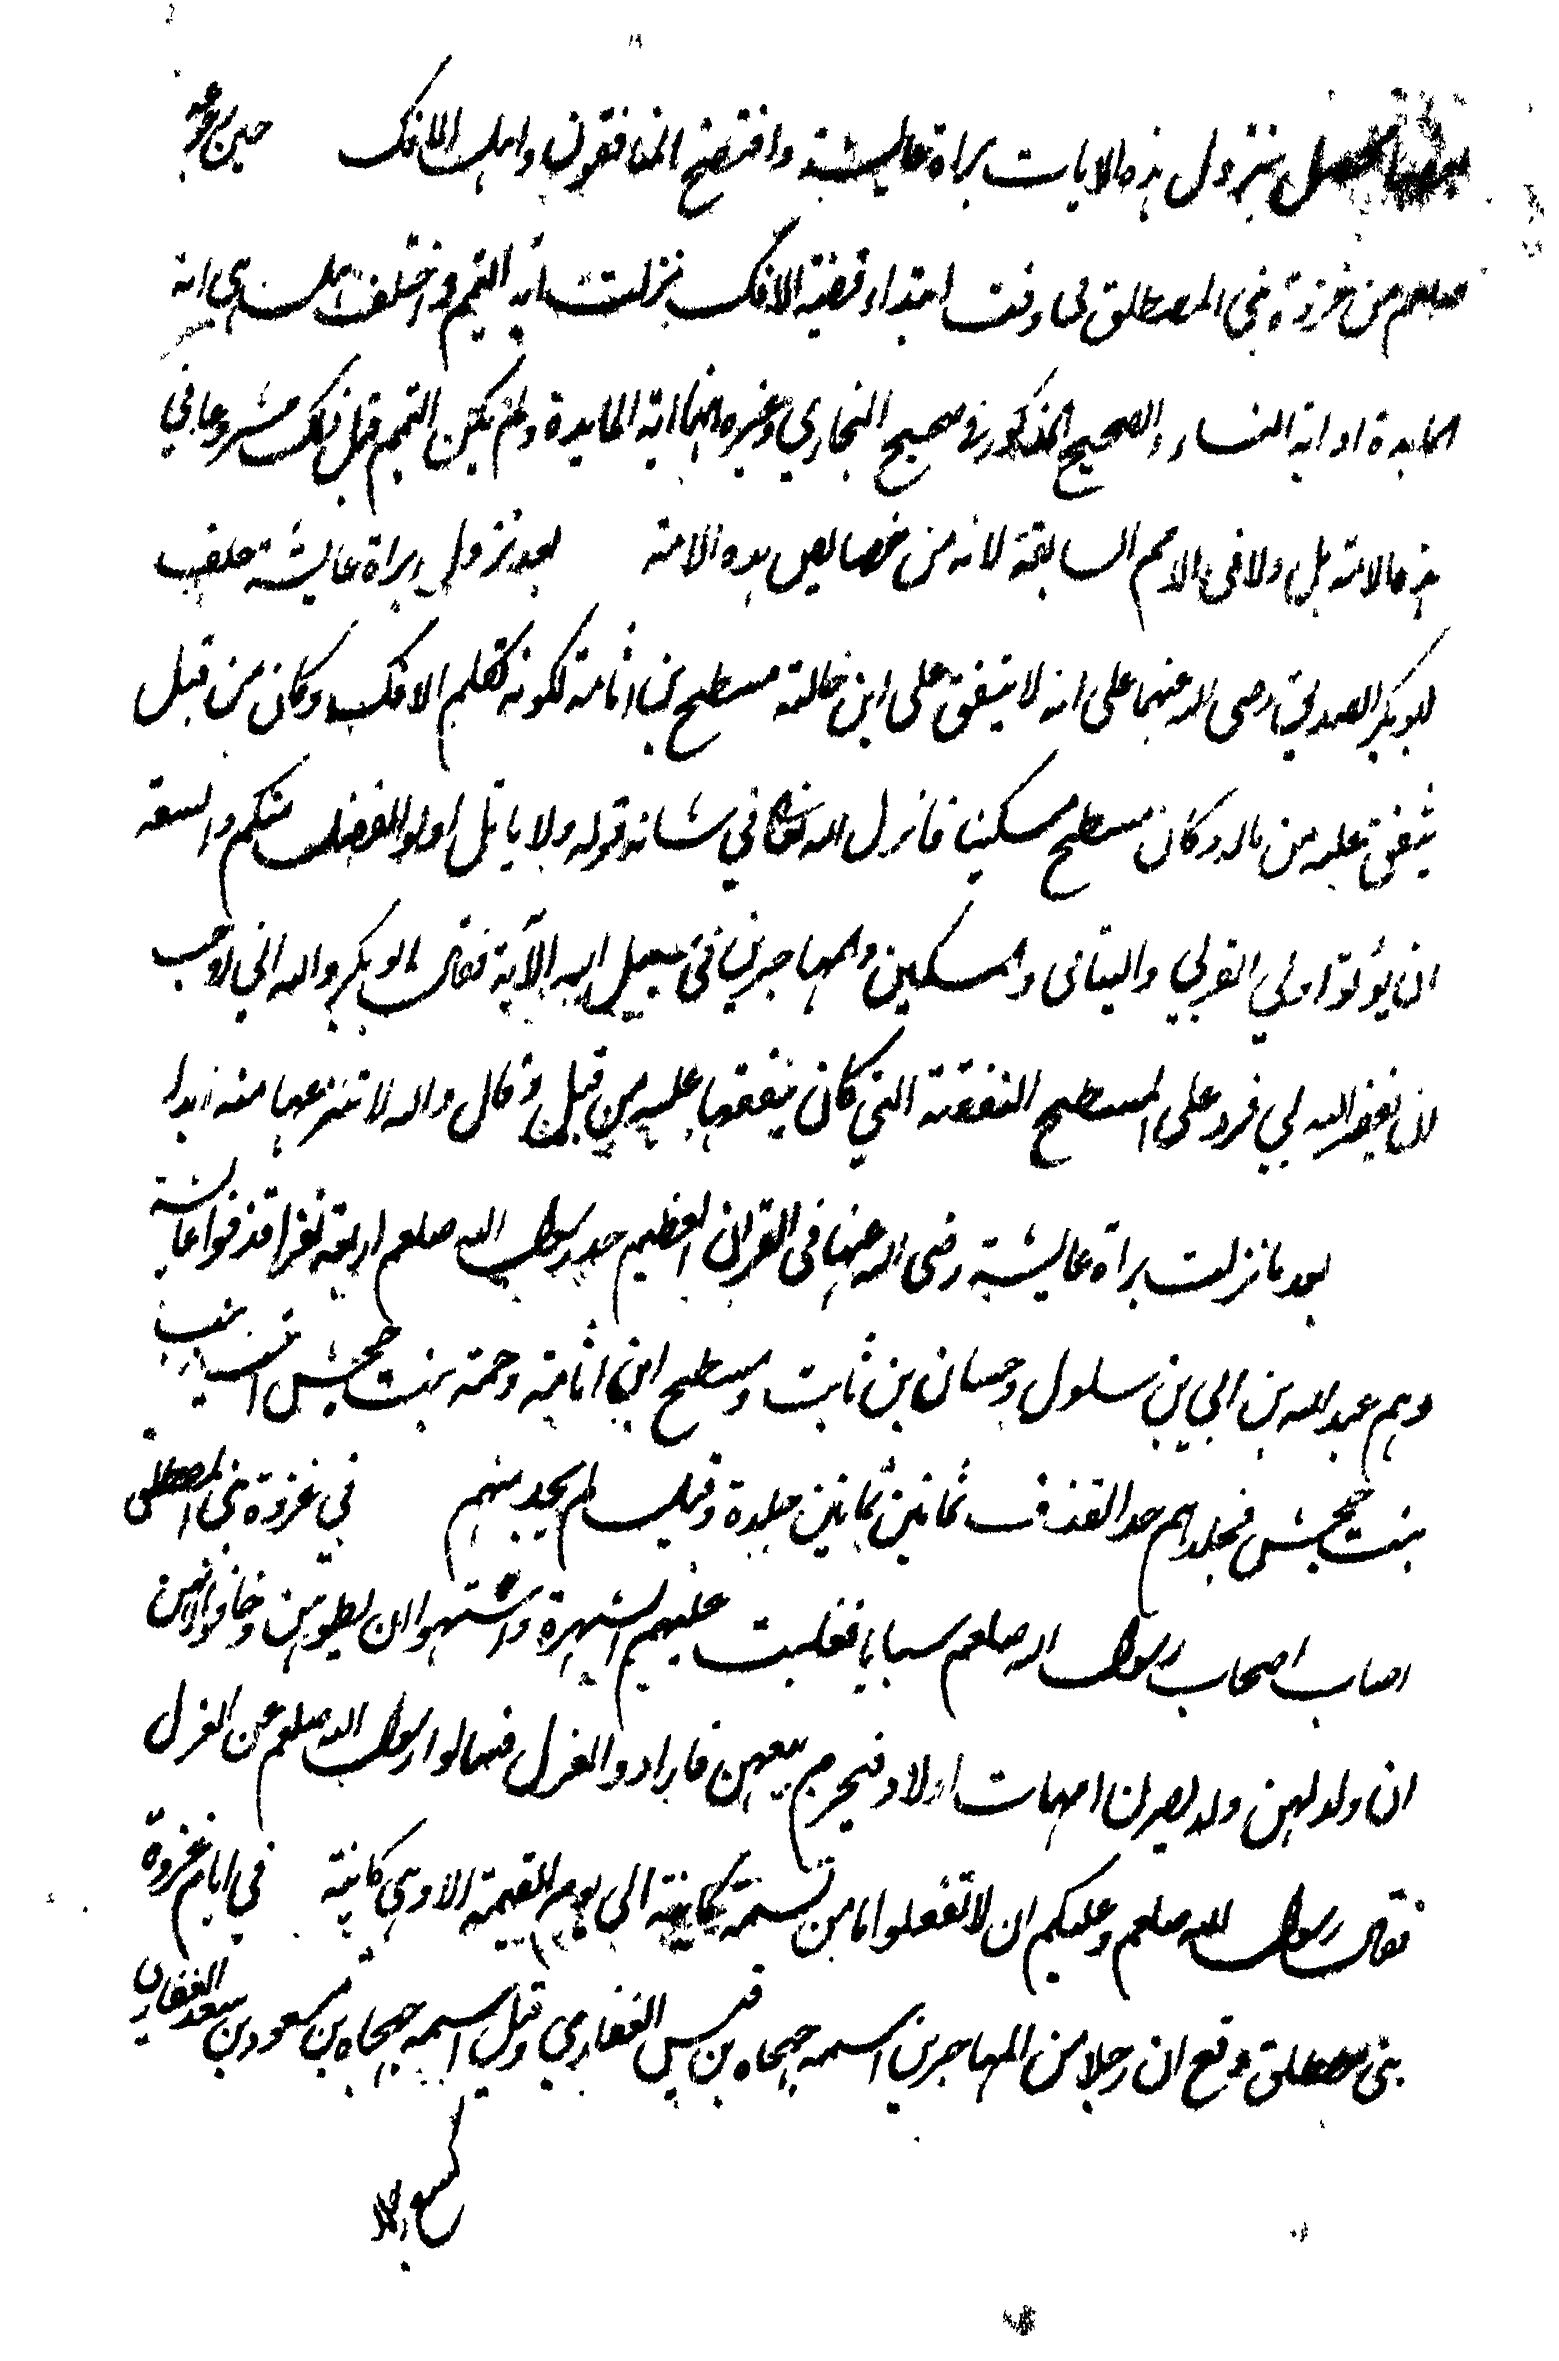 بنزول هذه الايات براة عايشة وافتضح المنافقون واهل الافك حين رجوعه
صلعم من غزوة بني المصطلق في وقت ابتداء قضية الافك نزلت اية التيمم واختلف هل هي اية
المايدة او اية النساء والصحيح المذكور في صحيح البخاري وغيره انها اية المايدة ولم يكن التيمم قبل ذلك مشروعا في
هذه الامة بل ولا في الامم السابقة لانه من خصايص هذه الامة بعد نزول براة عايشة حلف
ابو بكر الصديق رضى الله عنهما على انه لا ينفق على ابن خالته مسطح بن اثاثة لكونه تكلم الافك وكان من قبل
ينفق عليه من ماله وكان مسطح مسكينا فانزل الله تعالى في شانه قوله ولا ياتل اولوا الفضل منكم والسعة
ان يؤتوا اولي القربى واليتامى والمسكين والمهاجرين في سبيل الله الآية فقال ابو بكر والله اني لاحب
ان يغفر الله لي فرد على المسطح النفقة التي كان ينفقها عليه من قبل وقال والله لا تنزعها منه ابدا
بعد ما نزلت براة عايشة رضى الله عنها في القران العظيم حد رسول الله صلعم اربعة نفرا قذفوا عايشة
وهم عبد الله بن ابي بن سلول وحسان بن ثابت ومسطح ابن اثاثة وحمنة بنت جحش اخت زينب
بنت جحش فجلدهم حد القذف ثمانين ثمانين جلدة وقيل لم يحد منهم في غزوة بني المصطلق
اصاب اصحاب رسول الله صلعم سبايا فغلبت عليهم الشهوة واشتهوا ان يطوهن وخافوا من
ان ولد لهن ولد يصرن امهات اولاد فيحرم بيعهن فارادوا العزل فسالوا رسول الله صلعم عن العزل
فقال رسول الله صلعم وعليكم ان لا تفعلوا ما من نسمة كاينة الى يوم القيمة الا وهي كاينة في ايام غزوة
بني مصطلق وقع ان رجلا من المهاجرين اسمه جهجاه بن قيس الغفاري وقيل اسمه جهجاه بن مسعود بن سعد الغفاري